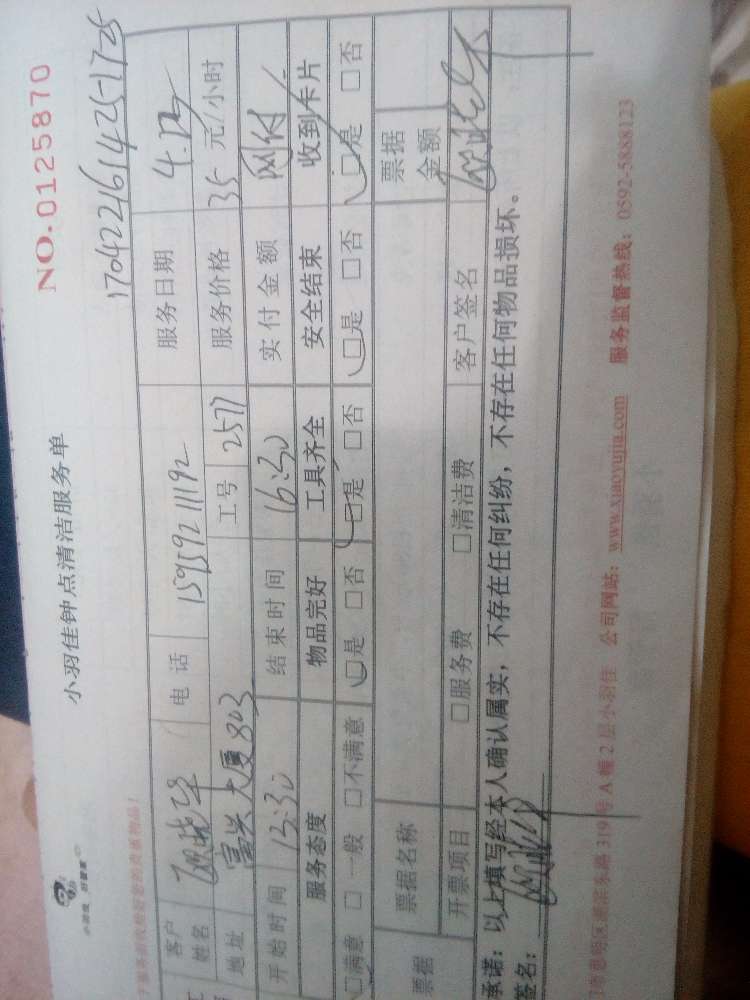 NO.0125870
小羽佳钟点清洁服务单
1704221614251725
小羽佳 好管家
客户姓名 电话 15959211192 服务日期 4.22
地址 富兴大厦803 工号 2577 服务价格 35 元/小时
开始时间 13:30 结束时间 16:30 实付金额 网付
服务态度 物品完好 工具齐全 安全结束 收到卡片
□满意 □一般 □不满意 □是 □否 □是 □否 □是 □否 □是 □否
票据 票据名称 票据金额
开票项目 □服务费 □清洁费 客户签名
承诺：以上填写经本人确认属实，不存在任何纠纷，不存在任何物品损坏。
签名：
市思明区湖滨东路319号A幢2层小羽佳 公司网站：www.xiaoyujia.com 服务监督热线：0592-5888123